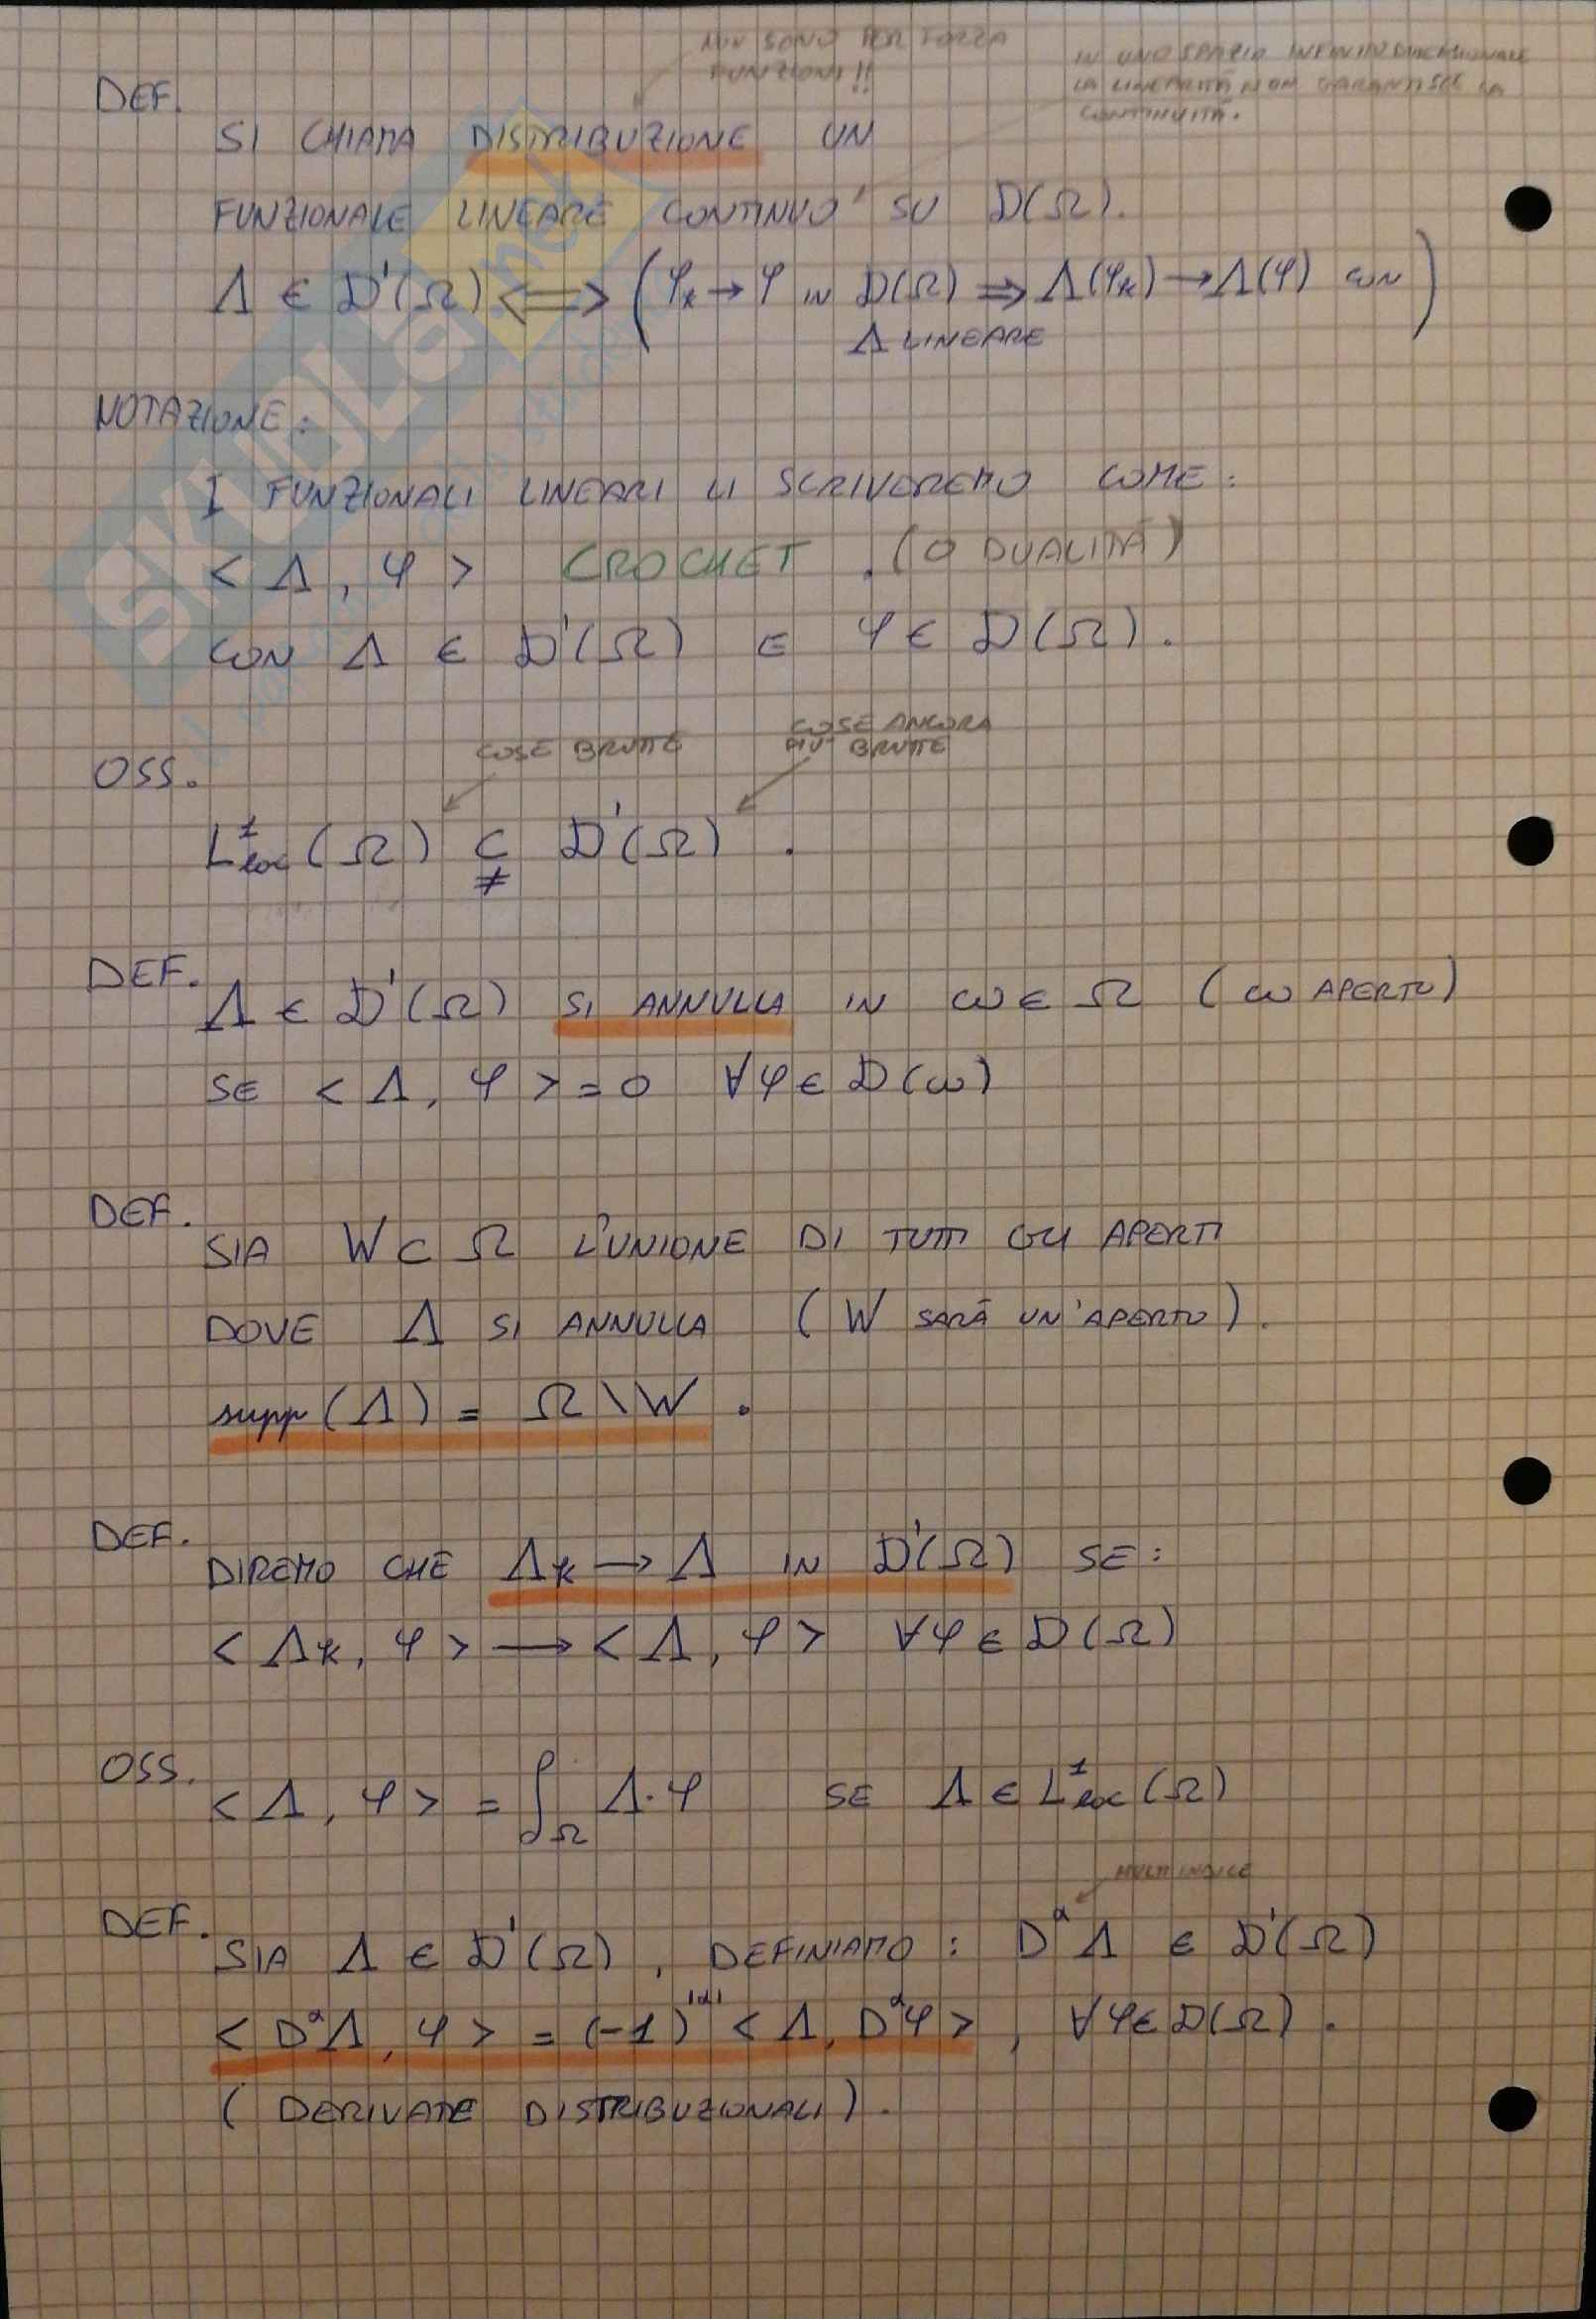 NON SONO PER FORZA
FUNZIONI!!
IN UNO SPAZIO INFINITODIMENSIONALE
LA LINEARITÀ NON GARANTISCE LA
CONTINUITÀ.
DEF.
SI CHIAMA DISTRIBUZIONE UN
FUNZIONALE LINEARE CONTINUO SU D(Ω).
Λ ∈ D'(Ω) <=> (φₖ → φ IN D(Ω) => Λ(φₖ) → Λ(φ) CON)
Λ LINEARE
NOTAZIONE:
I FUNZIONALI LINEARI LI SCRIVEREMO COME:
< Λ, φ > CROCHET. (O DUALITÀ)
CON Λ ∈ D'(Ω) E φ ∈ D(Ω).
COSE BRUTTE
COSE ANCORA
PIÙ BRUTTE
OSS.
L¹loc(Ω) ⊊ D'(Ω).
DEF.
Λ ∈ D'(Ω) SI ANNULLA IN ω ∈ Ω (ω APERTO)
SE < Λ, φ > = 0 ∀φ ∈ D(ω)
DEF.
SIA W ⊂ Ω L'UNIONE DI TUTTI GLI APERTI
DOVE Λ SI ANNULLA (W SARÀ UN'APERTO).
supp(Λ) = Ω \ W.
DEF.
DIREMO CHE Λₖ → Λ IN D'(Ω) SE:
< Λₖ, φ > → < Λ, φ > ∀φ ∈ D(Ω)
OSS.
< Λ, φ > = ∫_Ω Λ·φ SE Λ ∈ L¹loc(Ω)
MULTIINDICE
DEF.
SIA Λ ∈ D'(Ω), DEFINIAMO: D^α Λ ∈ D'(Ω)
< D^α Λ, φ > = (-1)^|α| < Λ, D^α φ >, ∀φ ∈ D(Ω).
(DERIVATE DISTRIBUZIONALI).